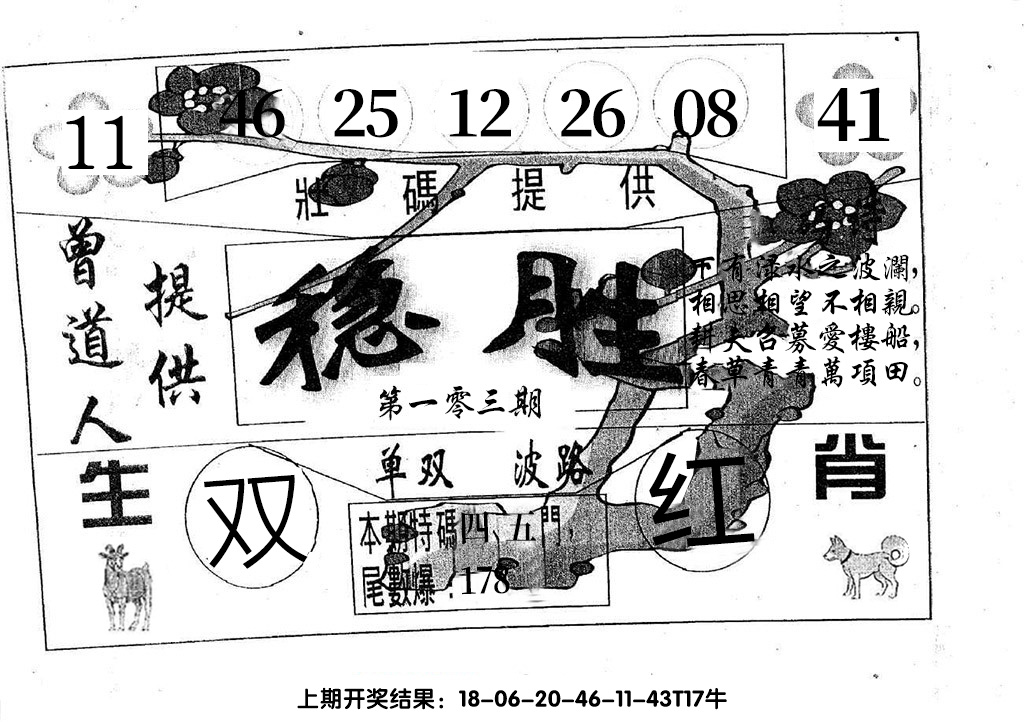 11 46 25 12 26 08 41
壯碼提供
曾道人
提供
穩胜
第一零三期
不有渌水之波瀾，
相思相望不相親。
大台募愛樓船，
春草青青萬項田。
单双 波路
生肖
双 红
本期特碼四、五門，
尾數爆:178
上期开奖结果：18-06-20-46-11-43T17牛